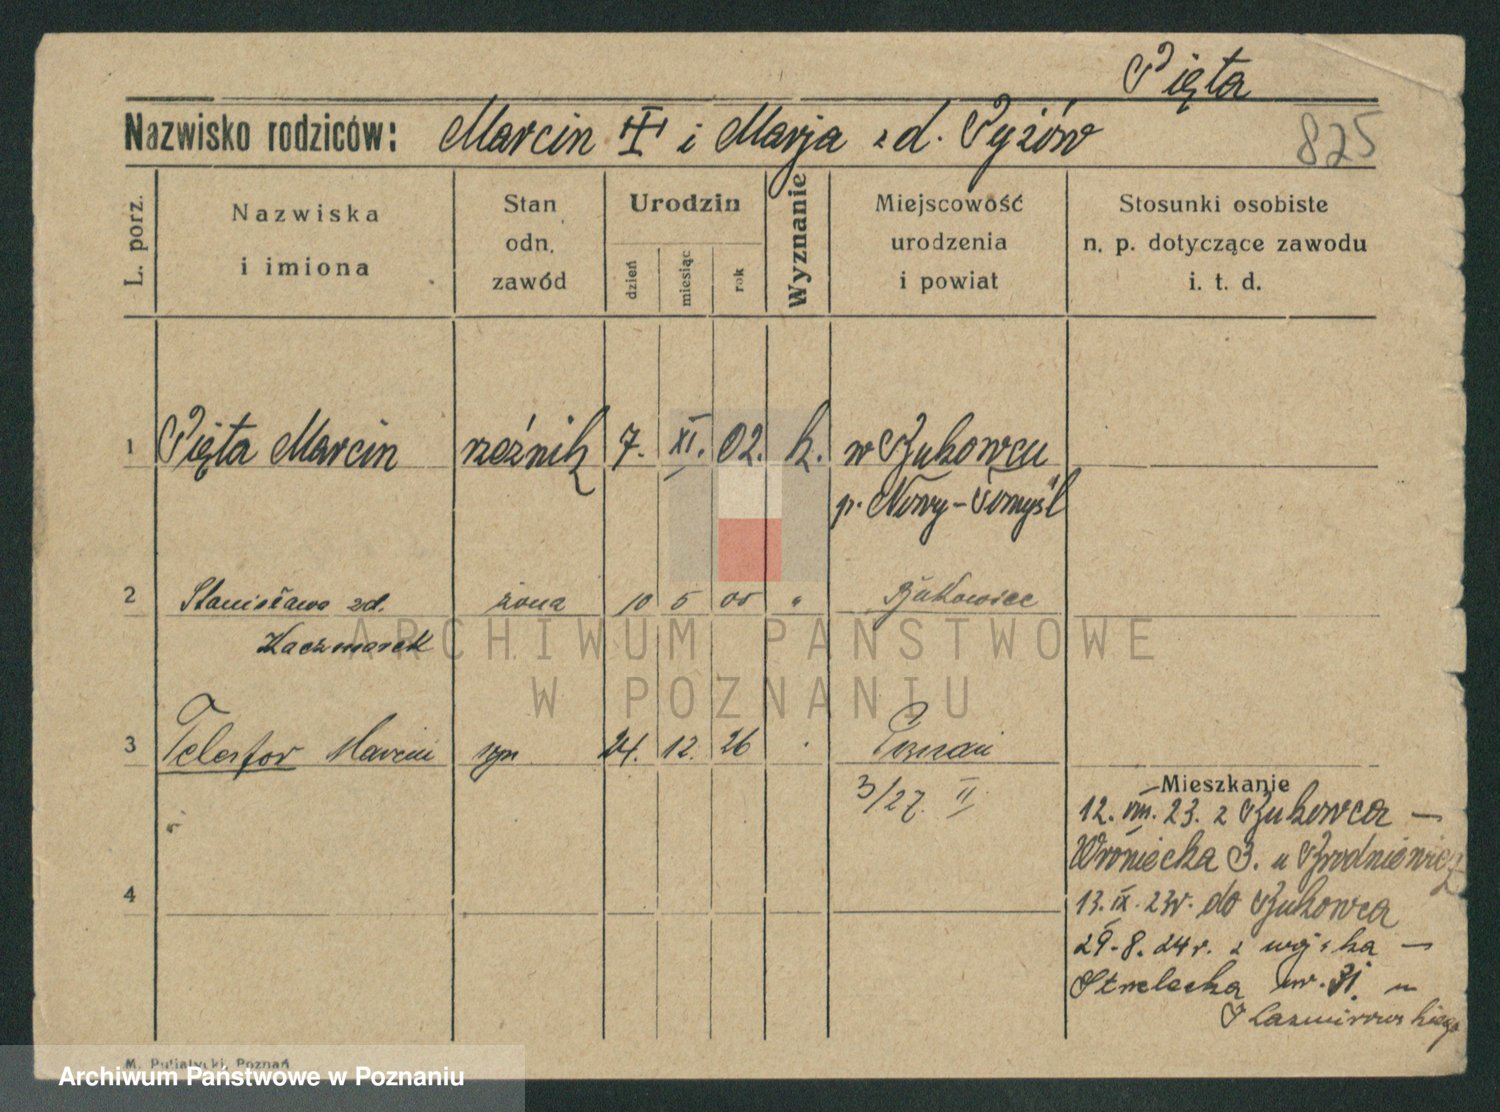 Pięta
Nazwisko rodziców: Marcin i Marja z d. Pyżów
825
L. porz.
Nazwiska i imiona
Stan odn. zawód
Urodzin
dzień miesiąc rok
Wyznanie
Miejscowość urodzenia i powiat
Stosunki osobiste n. p. dotyczące zawodu i. t. d.
1 Pięta Marcin rzeźnik 7. XI. 02. k. w Bukowcu
p. Nowy-Tomyśl
2 Stanisława zd. żona 10 5 00 " Bukowiec
Kaczmarek
ARCHIWUM PAŃSTWOWE
W POZNANIU
3 Telesfor Marcin syn 24. 12. 26 Poznań
3/27. II
Mieszkanie
12. VIII. 23. z Bukowca —
Wroniecka 3. u Brodniewicz
4
13. IX. 23r. do Bukowca
29.8.24r. z wojska —
Strzelecka nr. 31 u
Kazmirowskiego
M. Putiatycki, Poznań
Archiwum Państwowe w Poznaniu